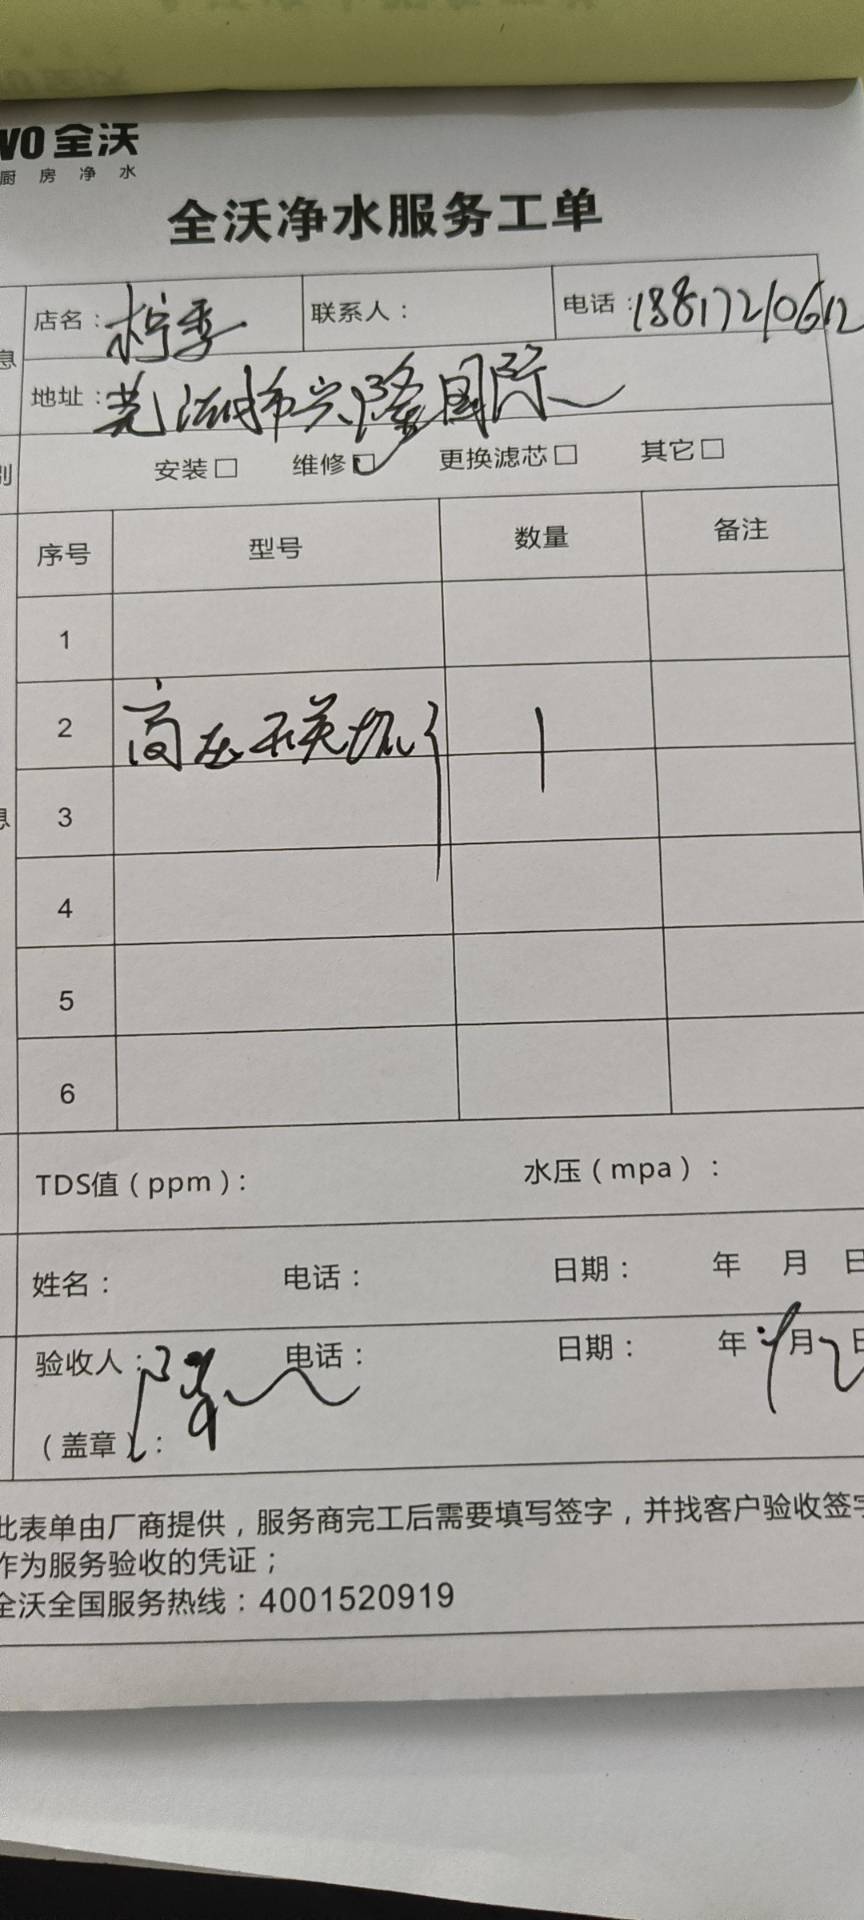 VO 全沃
厨房净水
全沃净水服务工单
息
店名：柠季 联系人： 电话：18817210612
地址：芜湖市兴隆国际
别
安装□ 维修☑ 更换滤芯□ 其它□
序号 型号 数量 备注
1
2 高压开关 1
息
3
4
5
6
TDS值（ppm）： 水压（mpa）：
姓名： 电话： 日期： 年 月 日
验收人： 电话： 日期： 年 9月2日
（盖章）：
此表单由厂商提供，服务商完工后需要填写签字，并找客户验收签字
作为服务验收的凭证；
全沃全国服务热线：4001520919